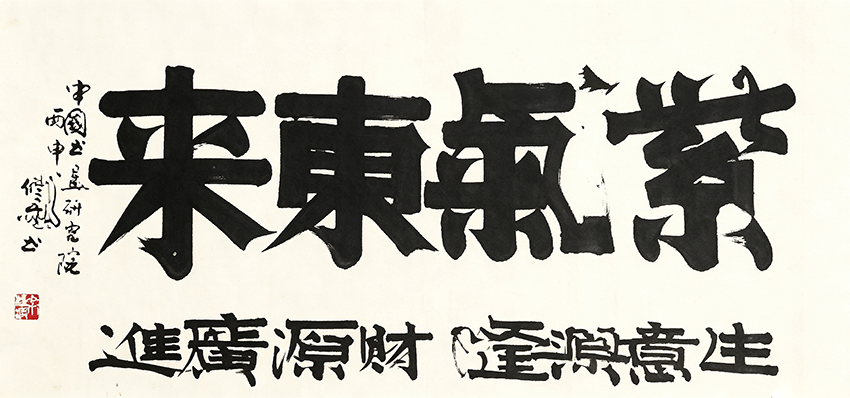 紫氣東来
生意源逢 財源廣進
中國书畫研究院
丙申 书